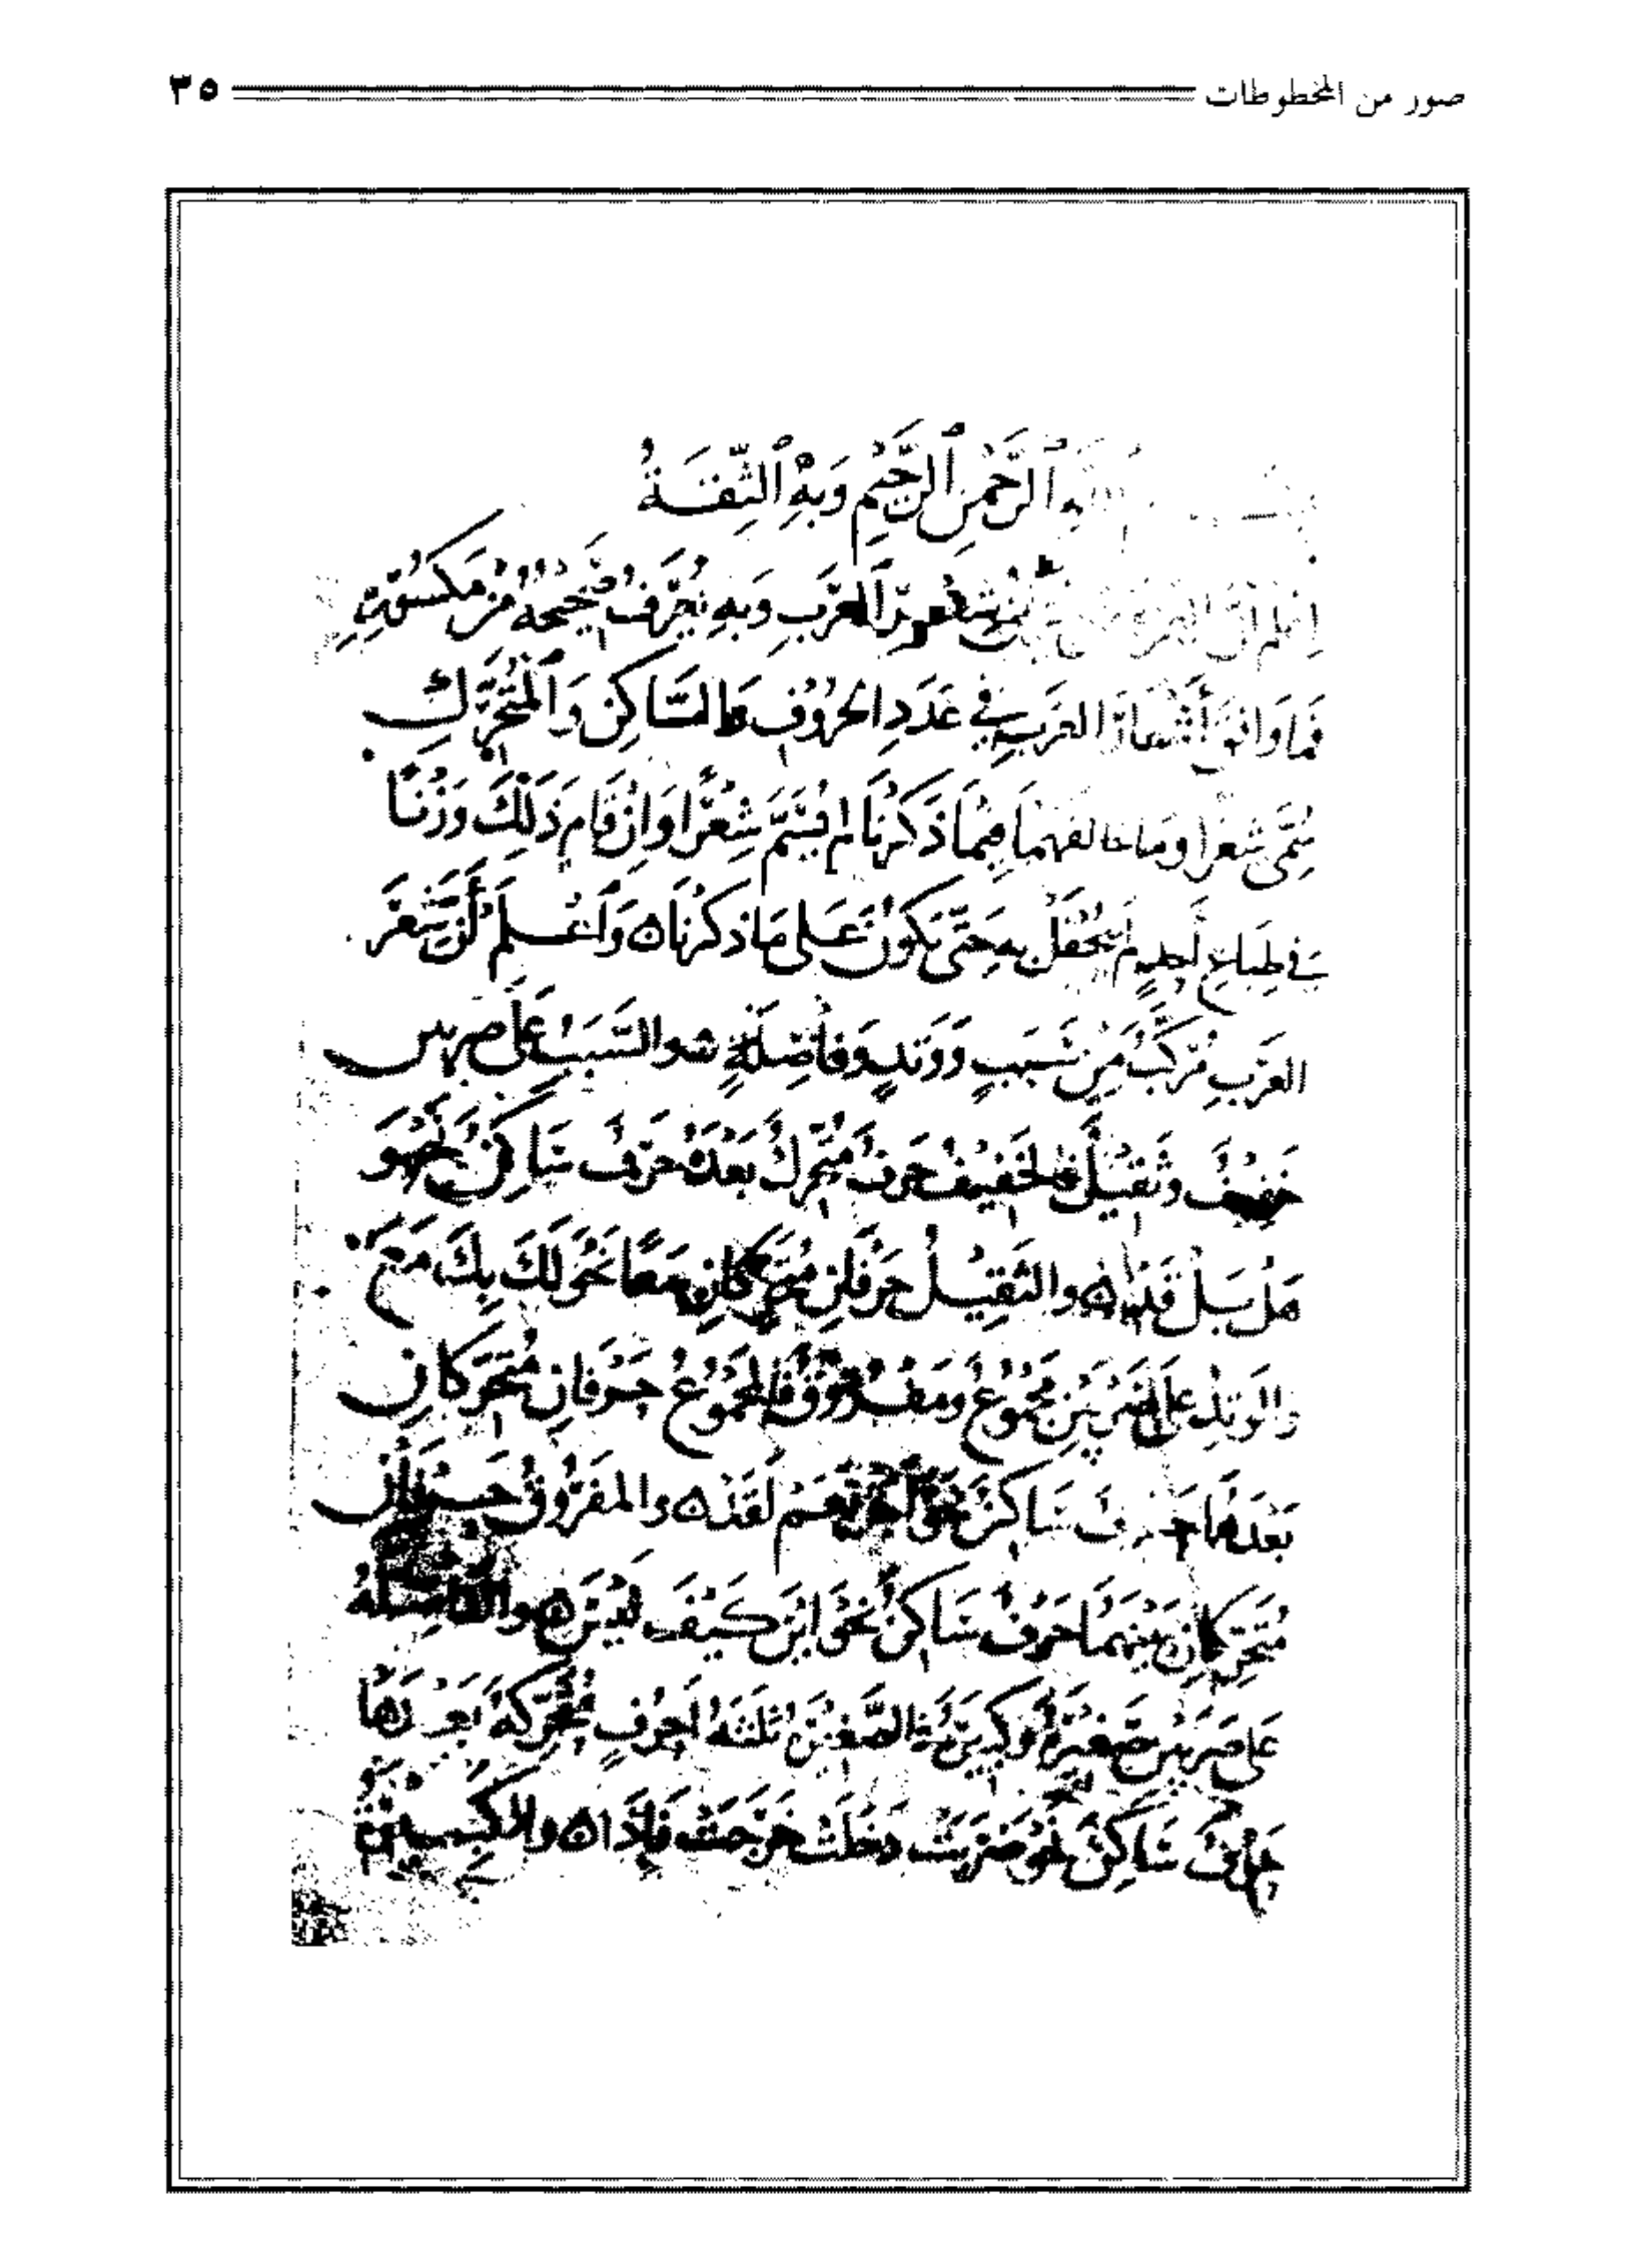 صور من المخطوطات ٣٥
الله الرَّحْمٰنِ الرَّحِيْمِ وَبِهِ الثِّقَةُ
اعلم أنّ العروض شعر العَرَبِ وَبِهِ يُعْرَفُ صَحِيحُهُ مِنْ مَكسُورِهِ
فَمَا وَافَقَ أَشْعَارَ العَرَبِ فِي عَدَدِ الحُرُوفِ والسَّاكِنِ وَالمُتَحَرِّكِ
سُمِّيَ شِعْرًا وما خالفهما فِيمَا ذَكَرْنَا لم يُسَمَّ شِعْرًا وَإِنْ قَامَ ذَلِكَ وَزْنًا
فِي طِبَاعِ أَحَدٍ لم يُحْفَلْ بِهِ حَتَّى يَكُونَ عَلى مَا ذكرنَا ۞ وَاعْلَمْ أَنَّ شِعْرَ
العَرَبِ مُرَكَّبٌ مِنْ سَبَبٍ وَوَتَدٍ وَفَاصِلَةٍ ۞ والسَّبَبُ عَلَى ضربين
خفيفٌ وثَقيلٌ فالخَفيفُ حَرفٌ مُتَحَرِّكٌ بَعْدَهُ حَرْفٌ سَاكِنٌ نَحْوَ
هَلْ بَلْ قَدْ ۞ والثَّقِيلُ حَرْفَانِ مُتَحَرِّكَانِ مَعًا نَحْوَ لَكَ بِكَ مَعَ
والوَتِدُ عَلَى ضَرْبَيْنِ مَجْمُوعٌ ومَفْرُوقٌ فالمجْمُوعُ حَرْفَانِ مُتَحَرِّكَانِ
بَعْدَهُمَا حَرْفٌ سَاكنٌ نَحْوَ نَعَمْ لَقَدْ ۞ والمَفرُوقُ حَرْفَانِ
مُتَحَرِّكَانِ بَيْنَهُمَا حَرْفٌ سَاكنٌ نَحْوَ أَيْنَ كَيْفَ لَيْسَ ۞ والفاصِلَةُ
عَلَى ضَرْبَيْنِ صَغِيْرَةٌ وَكَبِيْرَةٌ فالصَّغِيْرَةُ ثَلَثَةُ أَحْرُفٍ مُتَحَرِّكَةٍ بَعْدَهَا
حَرْفٌ سَاكِنٌ نَحْوَ ضَرَبَتْ دَخَلَتْ خَرَجَتْ ۞ والكَبِيْرَةُ